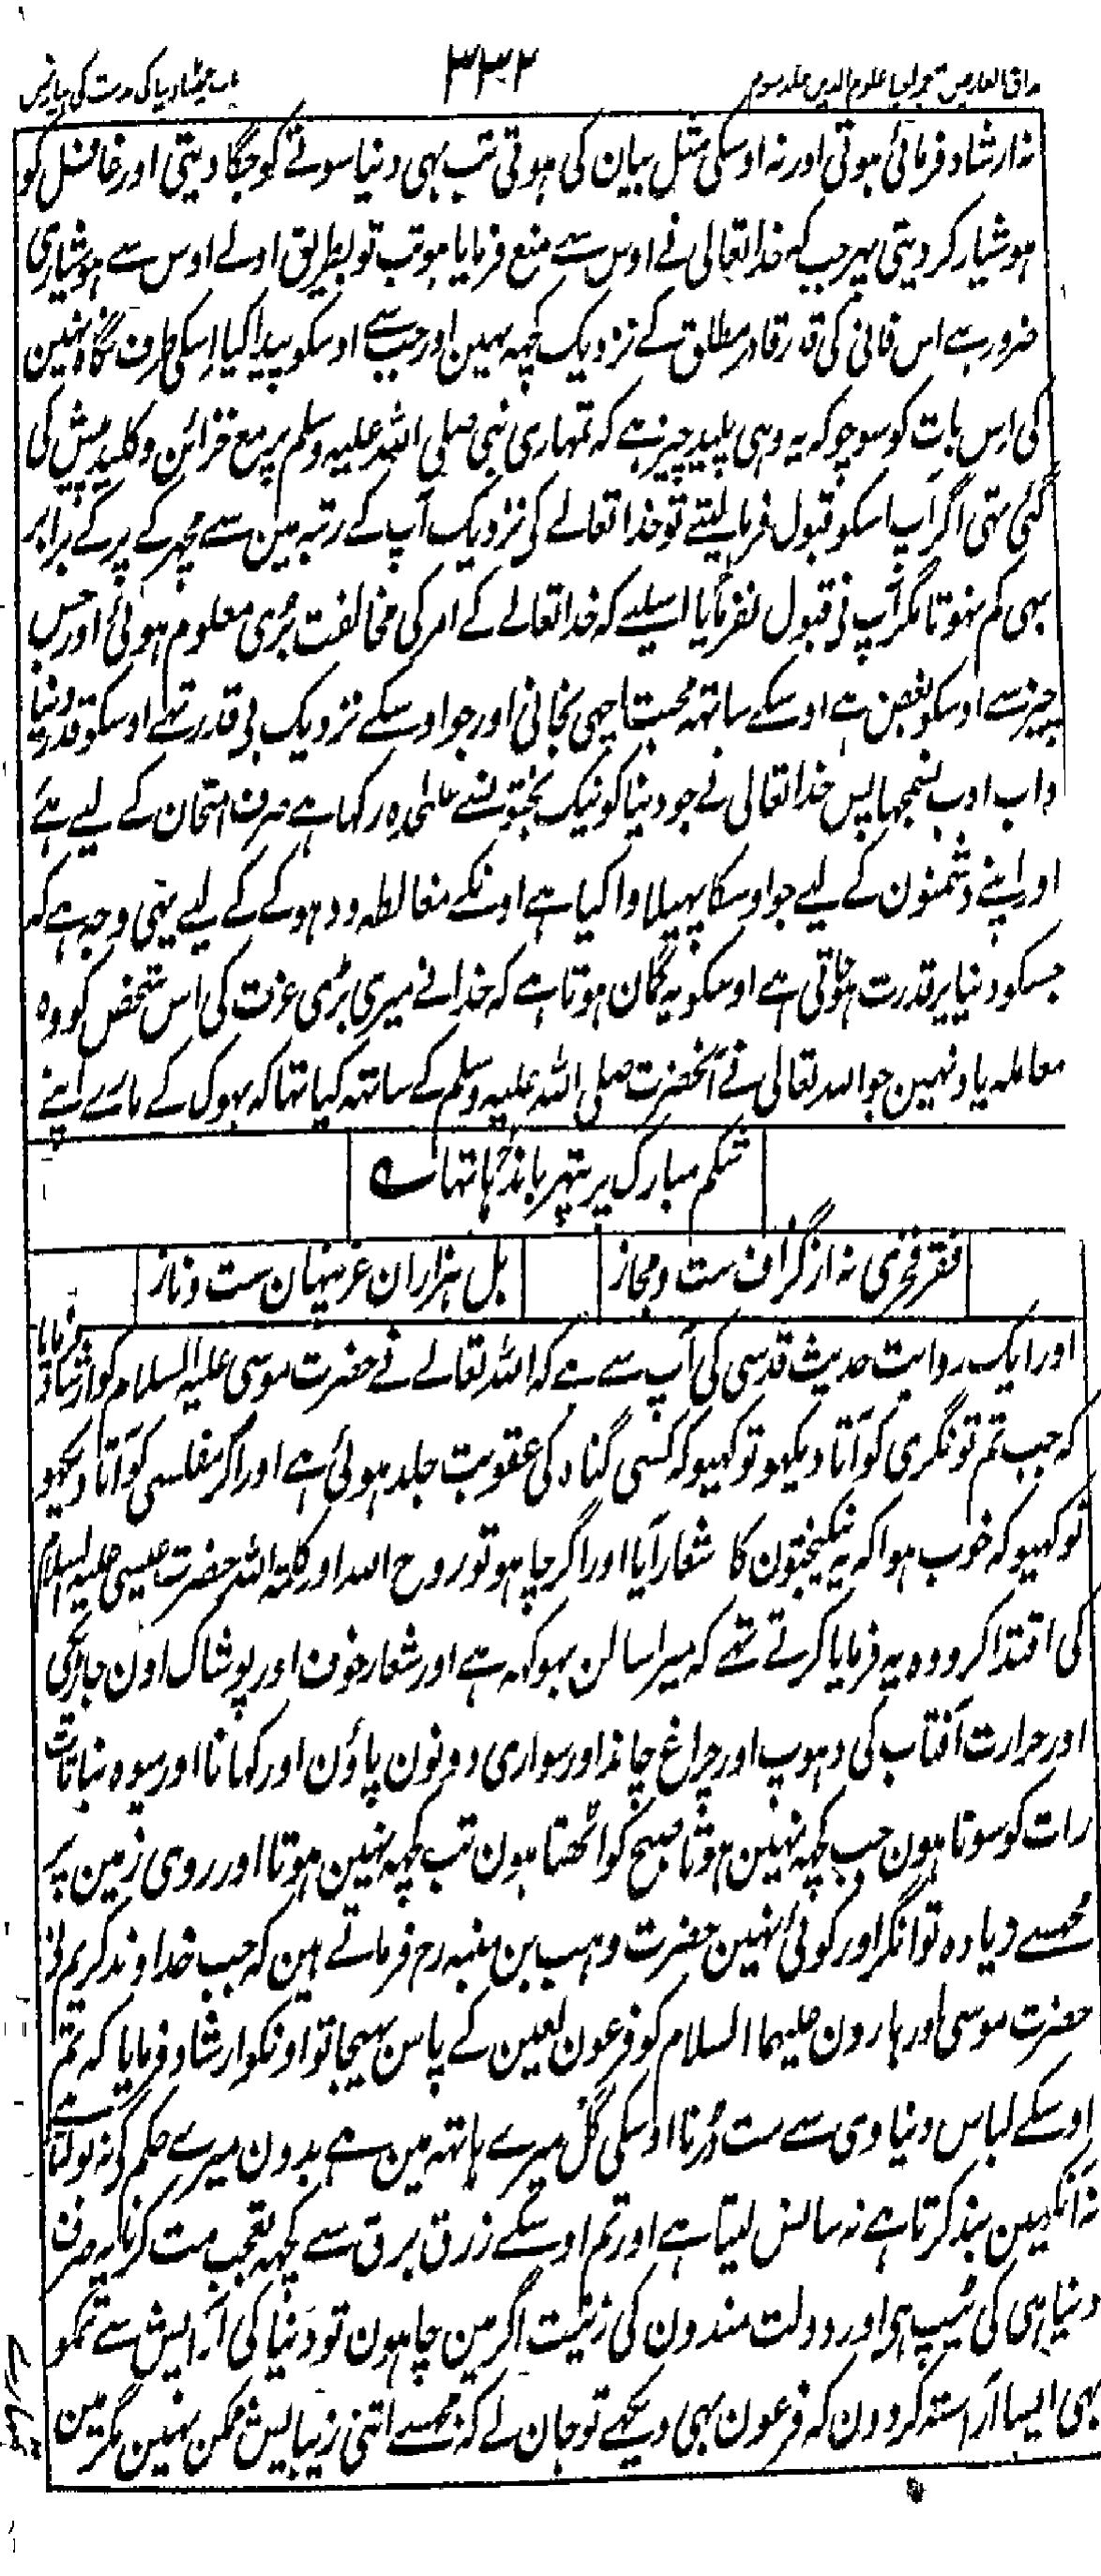 مذاق العارفین ترجمہ احیاء علوم الدین جلد سوم
۳۳۲
باب ششم دنیا کی مذمت کی بیان میں
نہ ارشاد فرمائی ہوتی اور نہ اوسکی مثل بیان کی ہوتی تب بہی دنیا سوتے کو جگا دیتی اور غافل کو
ہوشیار کر دیتی پہر جب کہ خدا تعالی نے اوس سے منع فرمایا ہو تب تو بطریق اولے اوس سے ہوشیاری
ضرور ہے اس فانی کی قدر قادر مطلق کے نزدیک کچہہ نہین اور جب سے اوسکو پیدا کیا اسکی طرف نگاہ نہین
کی اس بات کو سوچو کہ یہ وہی پلید چیز ہے کہ تمہاری نبی صلی اللہ علیہ وسلم پر مع خزائن و کلید پیش کی
گئی تہی اگر آپ اسکو قبول فرما لیتے تو خدا تعالے کی نزدیک آپ کے رتبہ مین سے مچہر کے پر کے برابر
بہی کم نہوتا مگر آپ نی قبول نفرمایا اسلیے کہ خدا تعالے کے امر کی مخالفت بری معلوم ہوئی اور جس
چیز سے اوسکو بغض ہے اوسکے ساتہہ محبت اچہی نجانی اور جو اوسکے نزدیک بی قدر تہے اوسکو قدر دینا
داب ادب نسمجہا پس خدا تعالی نے جو دنیا کو نیک بختون سے علیحدہ رکہا ہے صرف امتحان کے لیے ہے
اور اپنے دشمنون کے لیے جو اوسکا پہیلاوا کیا ہے اونکے مغالطہ و دہوکے کے لیے یہی وجہ ہے کہ
جسکو دنیا پر قدرت ہوتی ہے اوسکو یہ گمان ہوتا ہے کہ خدا نے میری بڑی عزت کی اس شخص کو وہ
معاملہ یاد نہین جو اللہ تعالی نے آنحضرت صلی اللہ علیہ وسلم کے ساتہہ کیا تہا کہ بہوک کے مارے اپنے
شکم مبارک پر پتہر باندہا تہا ؎
فقر فخری نہ از گزاف ست و مجاز
بل ہزاران عز پنہان ست و ناز
اور ایک روایت حدیث قدسی کی آپ سے ہے کہ اللہ تعالے نے حضرت موسی علیہ السلام کو ارشاد فرمایا
کہ جب تم تونگری کو آتا دیکہو تو کہیو کہ کسی گناہ کی عقوبت جلد ہوئی ہے اور اگر مفلسی کو آتا دیکہو
تو کہیو کہ خوب ہوا کہ یہ نیکبختون کا شعار آیا اور اگر چاہو تو روح اللہ اور کلمۃ اللہ حضرت عیسی علیہ السلام
کی اقتدا کرو وہ یہ فرمایا کرتے تہے کہ میرا سالن بہوکہہ ہے اور شعار خوف اور پوشاک اون جاڑی کی
اور حرارت آفتاب کی دہوپ اور چراغ چاند اور سواری دونون پاؤن اور کہانا اور میوہ نباتات
رات کو سوتا ہون جب کچہہ نہین ہوتا صبح کو اٹہتا ہون تب کچہہ نہین ہوتا اور روی زمین پر
مجہسے زیادہ توانگر اور کوئی نہین حضرت وہب بن منبہ رح فرماتے ہین کہ جب خداوند کریم نے
حضرت موسی اور ہارون علیہما السلام کو فرعون لعین کے پاس بہیجا تو اونکو ارشاد فرمایا کہ تم
اوسکے لباس دنیاوی سے مت ڈرنا اوسکی کل میرے ہاتہہ مین ہے بدون میرے حکم کی نہ بولتا ہے
نہ آنکہین بند کرتا ہے نہ سانس لیتا ہے اور تم اوسکے زرق برق سے کچہہ تعجب مت کرنا یہ صرف
دنیا ہی کی ٹیپ ہی اور دولت مندون کی زینت اگر مین چاہون تو دنیا کی آرایش سے تمکو
بہی ایسا آراستہ کر دون کہ فرعون بہی دیکہے تو جان لے کہ مجہسے اتنی زیبایش ممکن نہین مگر مین